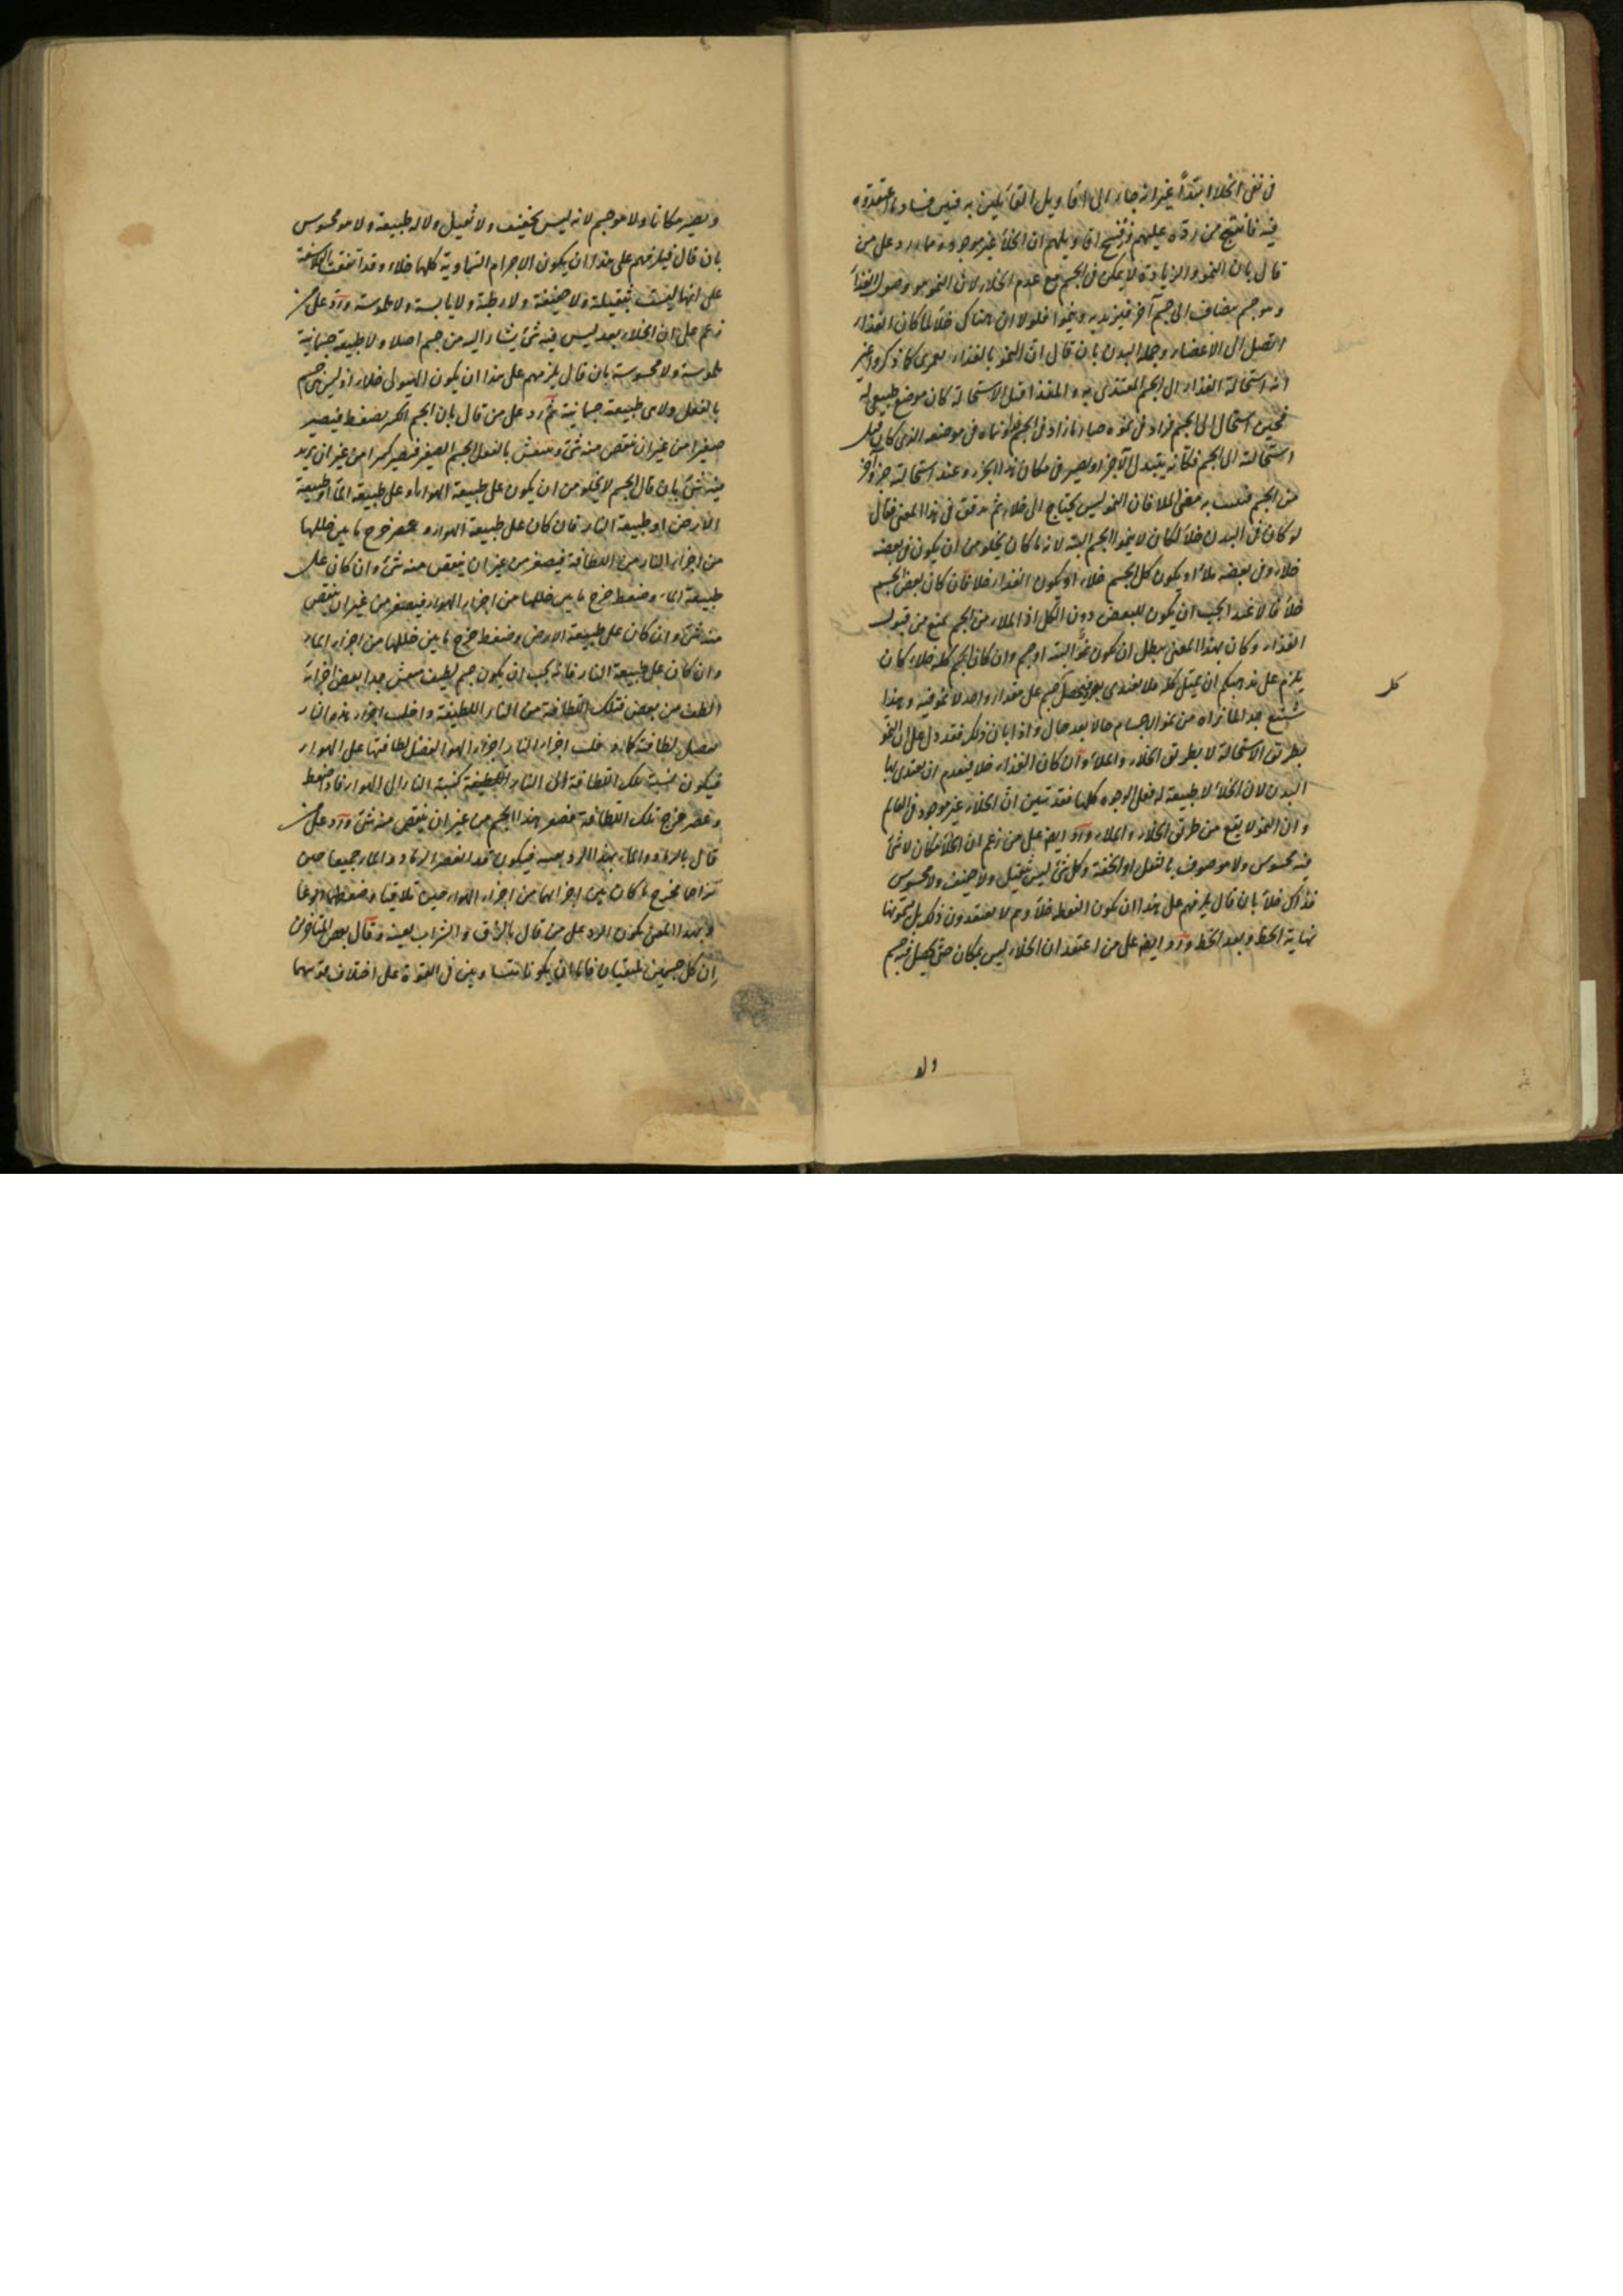 في نفي الخلاء ابتداً غير انه جاء الى اقاويل القائلين به فبين فساد ما اعتقدوه
فيه فانتتج من رده عليهم وفسخ اقاويلهم ان الخلاء غير موجود فما رد على من
قال بان النمو والزيادة لا يمكن في الجسم مع عدم الخلاء لان النمو هو وصول الغذاء
وهو جسم يضاف الى جسم آخر فيزيد به وينمو فلولا ان هناك خلاء لما كان الغذاء
اتصل الى الاعضاء وجملة البدن بان قال ان النمو بالغذاء كما ذكروا غير
انه استحالة الغذاء الى الجسم المغتذى به والغذاء قبل الاستحالة كان موضع طبيعي له
فحين استحال الى الجسم فزاد في نموه صار ما زاد في الجسم في موضعه الذي كان قبل
استحالته الى الجسم فكانه يتبدل الاجزاء ويصير في مكان هذا الجزء وعند استحالته جزء آخر
من الجسم فان النمو ليس يحتاج الى خلاء ثم دقق في هذا المعنى فقال
لو كان في البدن خلاء لكان لا ينموا الجسم البتة لانه ما كان يخلو من ان يكون في بعضه
خلاء وفي بعضه ملاء او يكون كل الجسم خلاء او يكون الغذاء خلاء فان كان بعض الجسم
خلاء فالاغتذاء يجب ان يكون للبعض دون الكل اذ الملاء من الجسم يمنع من قبول
الغذاء وكان بهذا المعنى يبطل ان يكون نموا البتة او جسم وان كان الجسم كله خلاء كان
يلزم على مذهبكم ان يمتلئ كله ملاء جسم على مقدار واحد لا نمو فيه وهذا
شنع جدا لما نراه من نمو الاجسام حالا بعد حال واذا بان ذلك فقد دل على ان النمو
بطريق الاستحالة لا بطريق الخلاء والملاء وان كان الغذاء خلاء فيعدم ان يغتذى بها
البدن لان الخلاء لا طبيعة له فعلى الوجوه كلها فقد تبين ان الخلاء غير موجود في العالم
وان النمو لا يقع من طريق الخلاء والملاء ورد ايضا على من زعم ان الخلاء مكان لا شئ
فيه محسوس ولا موصوف بالثقل او الخفة وكل شئ ليس بثقيل ولا خفيف ولا محسوس
فذاك خلاء بان قال يلزمهم على هذا ان يكون النقطة خلاء وهم لا يعتقدون ذلك بل يسمونها
نهاية الخط وبعد الخط ورد ايضا على من اعتقد ان الخلاء ليس بمكان حتى يحصل فيه جسم
كل
ولو
ويصير مكانا ولا هو جسم لانه ليس بخفيف ولا ثقيل ولا له طبيعة ولا هو محسوس
بان قال فيلزمهم على هذا ان يكون الاجرام السماوية كلها خلاء وقد اتفقت الفلاسفة
على انها ليست بثقيلة ولا خفيفة ولا رطبة ولا يابسة ولا ملموسة ورد على من
زعم على ان الخلاء بعد ليس فيه شئ يشار اليه من جسم اصلا ولا طبيعة جسمانية
ملموسة ولا محسوسة بان قال يلزمهم على هذا ان يكون الهيولى خلاء اذ ليس هي جسم
بالفعل ولا هي طبيعة جسمانية ثم رد على من قال بان الجسم الكبير يضغط فيصير
صغيرا من غير ان ينقص منه شئ وينفش بالفعل الجسم الصغير فيصير كبيرا من غير ان يزيد
فيه شئ بان قال الجسم لا يخلو من ان يكون على طبيعة الهواء او على طبيعة الماء او طبيعة
الارض او طبيعة النار فان كان على طبيعة الهواء وعصر خرج ما بين خللها
من اجزاء النار من اللطافة فيصغر من غير ان ينقص منه شئ وان كان على
طبيعة الماء وضغط خرج ما بين خللها من اجزاء الهواء فيصغر من غير ان ينقص
منه شئ وان كان على طبيعة الارض وضغط خرج ما بين خللها من اجزاء الماء
وان كان على طبيعة النار فانه يجب ان يكون جسم لطيف جدا بعض اجزائه
الطف من بعض فتلك اللطافة من النار اللطيفة داخلت اجزاء هذه النار
بفضل لطافته كما داخلت اجزاء النار اجزاء الهواء لفضل لطافتها على الهواء
فيكون نسبة تلك اللطافة الى النار اللطيفة كنسبة النار الى الهواء فاذا ضغط
وعصر خرج تلك اللطافة فصغر هذا الجسم من غير ان ينقص منه شئ ورد على من
قال بالرماد والماء بهذا الرد بعينه فيكون قد انعصر الرماد والماء جميعا حين
تزاحما فخرج ما كان بين اجزائهما من اجزاء الهواء حين تلاقيا وضغطهما الوعاء
وبهذا المعنى يكون الرد على من قال بالزق والشراب بعينه وقال بعض المتاولين
ان كل جسمين يلتقيان فاما ان يكونا متساويين في القوة على اختلاف قوتيهما